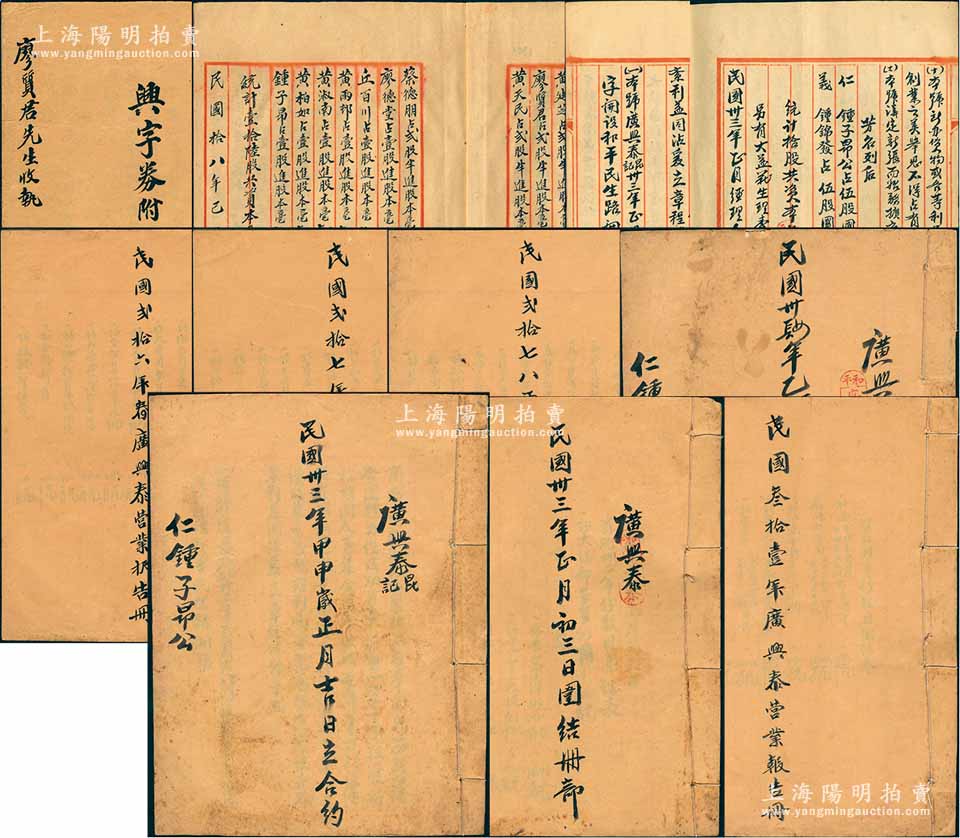 上海陽明拍賣
www.yangmingauction.com
興字券附
廖質君先生收執
蔡德朋占弍股半進股本毫
廖德堂占壹股進股本毫
丘百川占壹股進股本毫
黄雨邨占壹股進股本毫
黄淑南占壹股進股本毫
黄柏如占壹股進股本毫
鍾子昂占壹股進股本毫
統計壹拾陸股於資本
民國拾八年己
廖質君占弍股半進股本毫
黄天民占弍股半進股本毫
(一)本號廣興泰昆記卅三年正
字開設和平民生路
上海陽明拍賣
www.yangmingauction.com
芳名列后
仁 鍾子昂公占伍股國
義 鍾錦發占伍股國
統計拾股共資本
民國卅三年正月經理
民國弍拾六年春廣興泰營業報告冊
民國弍拾七年
民國弍拾七八
廣興
民國卅肆年乙
仁鍾
上海陽明拍賣
www.yangmingauction.com
廣興泰昆記
民國卅三年甲申歲正月吉日立合約
仁鍾子昂公
廣興泰
民國卅三年正月初三日團結冊部
民國叁拾壹年廣興泰營業報告冊
上海陽明拍賣
www.yangmingauction.com